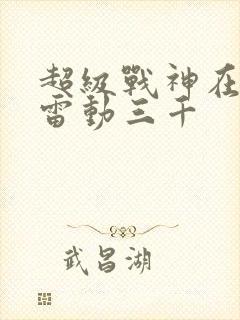 超級戰神在
雷動三千
武昌湖